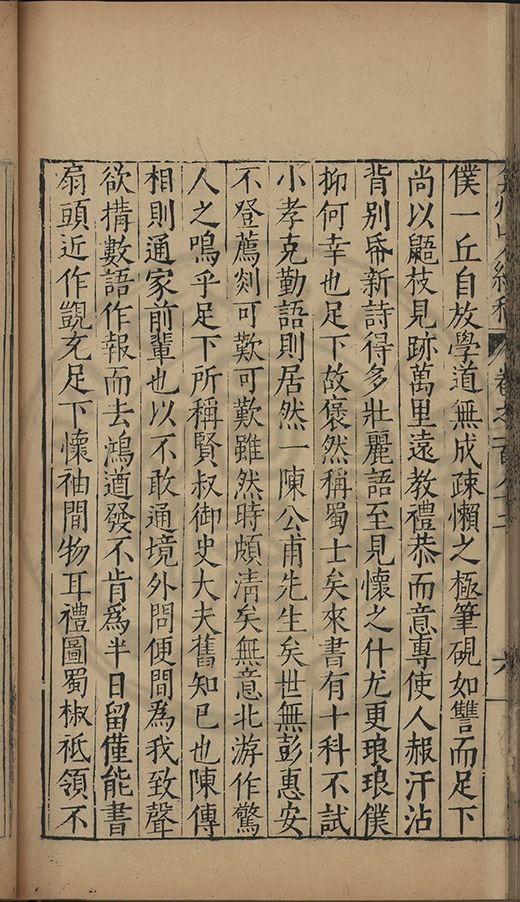 僕一丘自放學道無成疎懶之極筆硯如讐而足下
尚以鼯枝見跡萬里遠教禮恭而意專使人赧汗沾
背別帋新詩得多壯麗語至見懷之什尤更琅琅僕
抑何幸也足下故褒然稱蜀士矣來書有十科不試
小孝克勤語則居然一陳公甫先生矣世無彭惠安
不登薦剡可歎可歎雖然時頗清矣無意北游作驚
人之鳴乎足下所稱賢叔御史大夫舊知已也陳傳
相則通家前輩也以不敢通境外問便間為我致聲
欲搆數語作報而去鴻遒發不肯爲半日留僅能書
扇頭近作覬充足下懷袖間物耳禮圖蜀椒祗領不